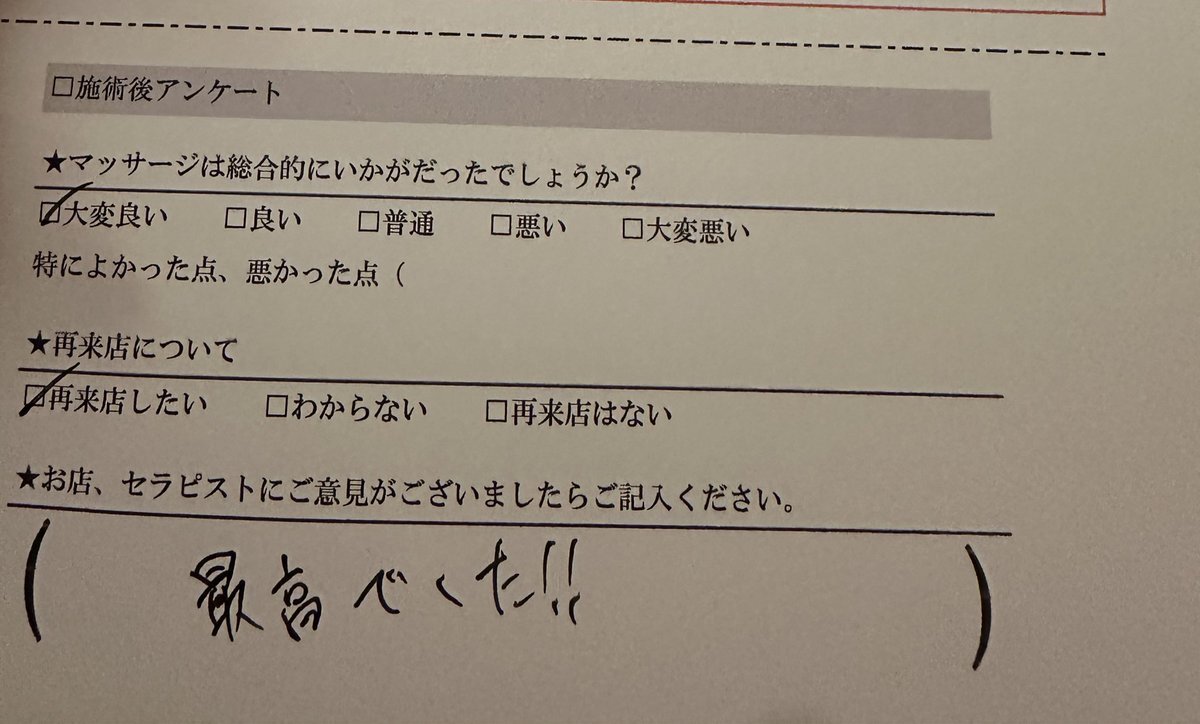 □施術後アンケート
★マッサージは総合的にいかがだったでしょうか？
☑大変良い □良い □普通 □悪い □大変悪い
特によかった点、悪かった点（
★再来店について
☑再来店したい □わからない □再来店はない
★お店、セラピストにご意見がございましたらご記入ください。
( 最高でした!! )